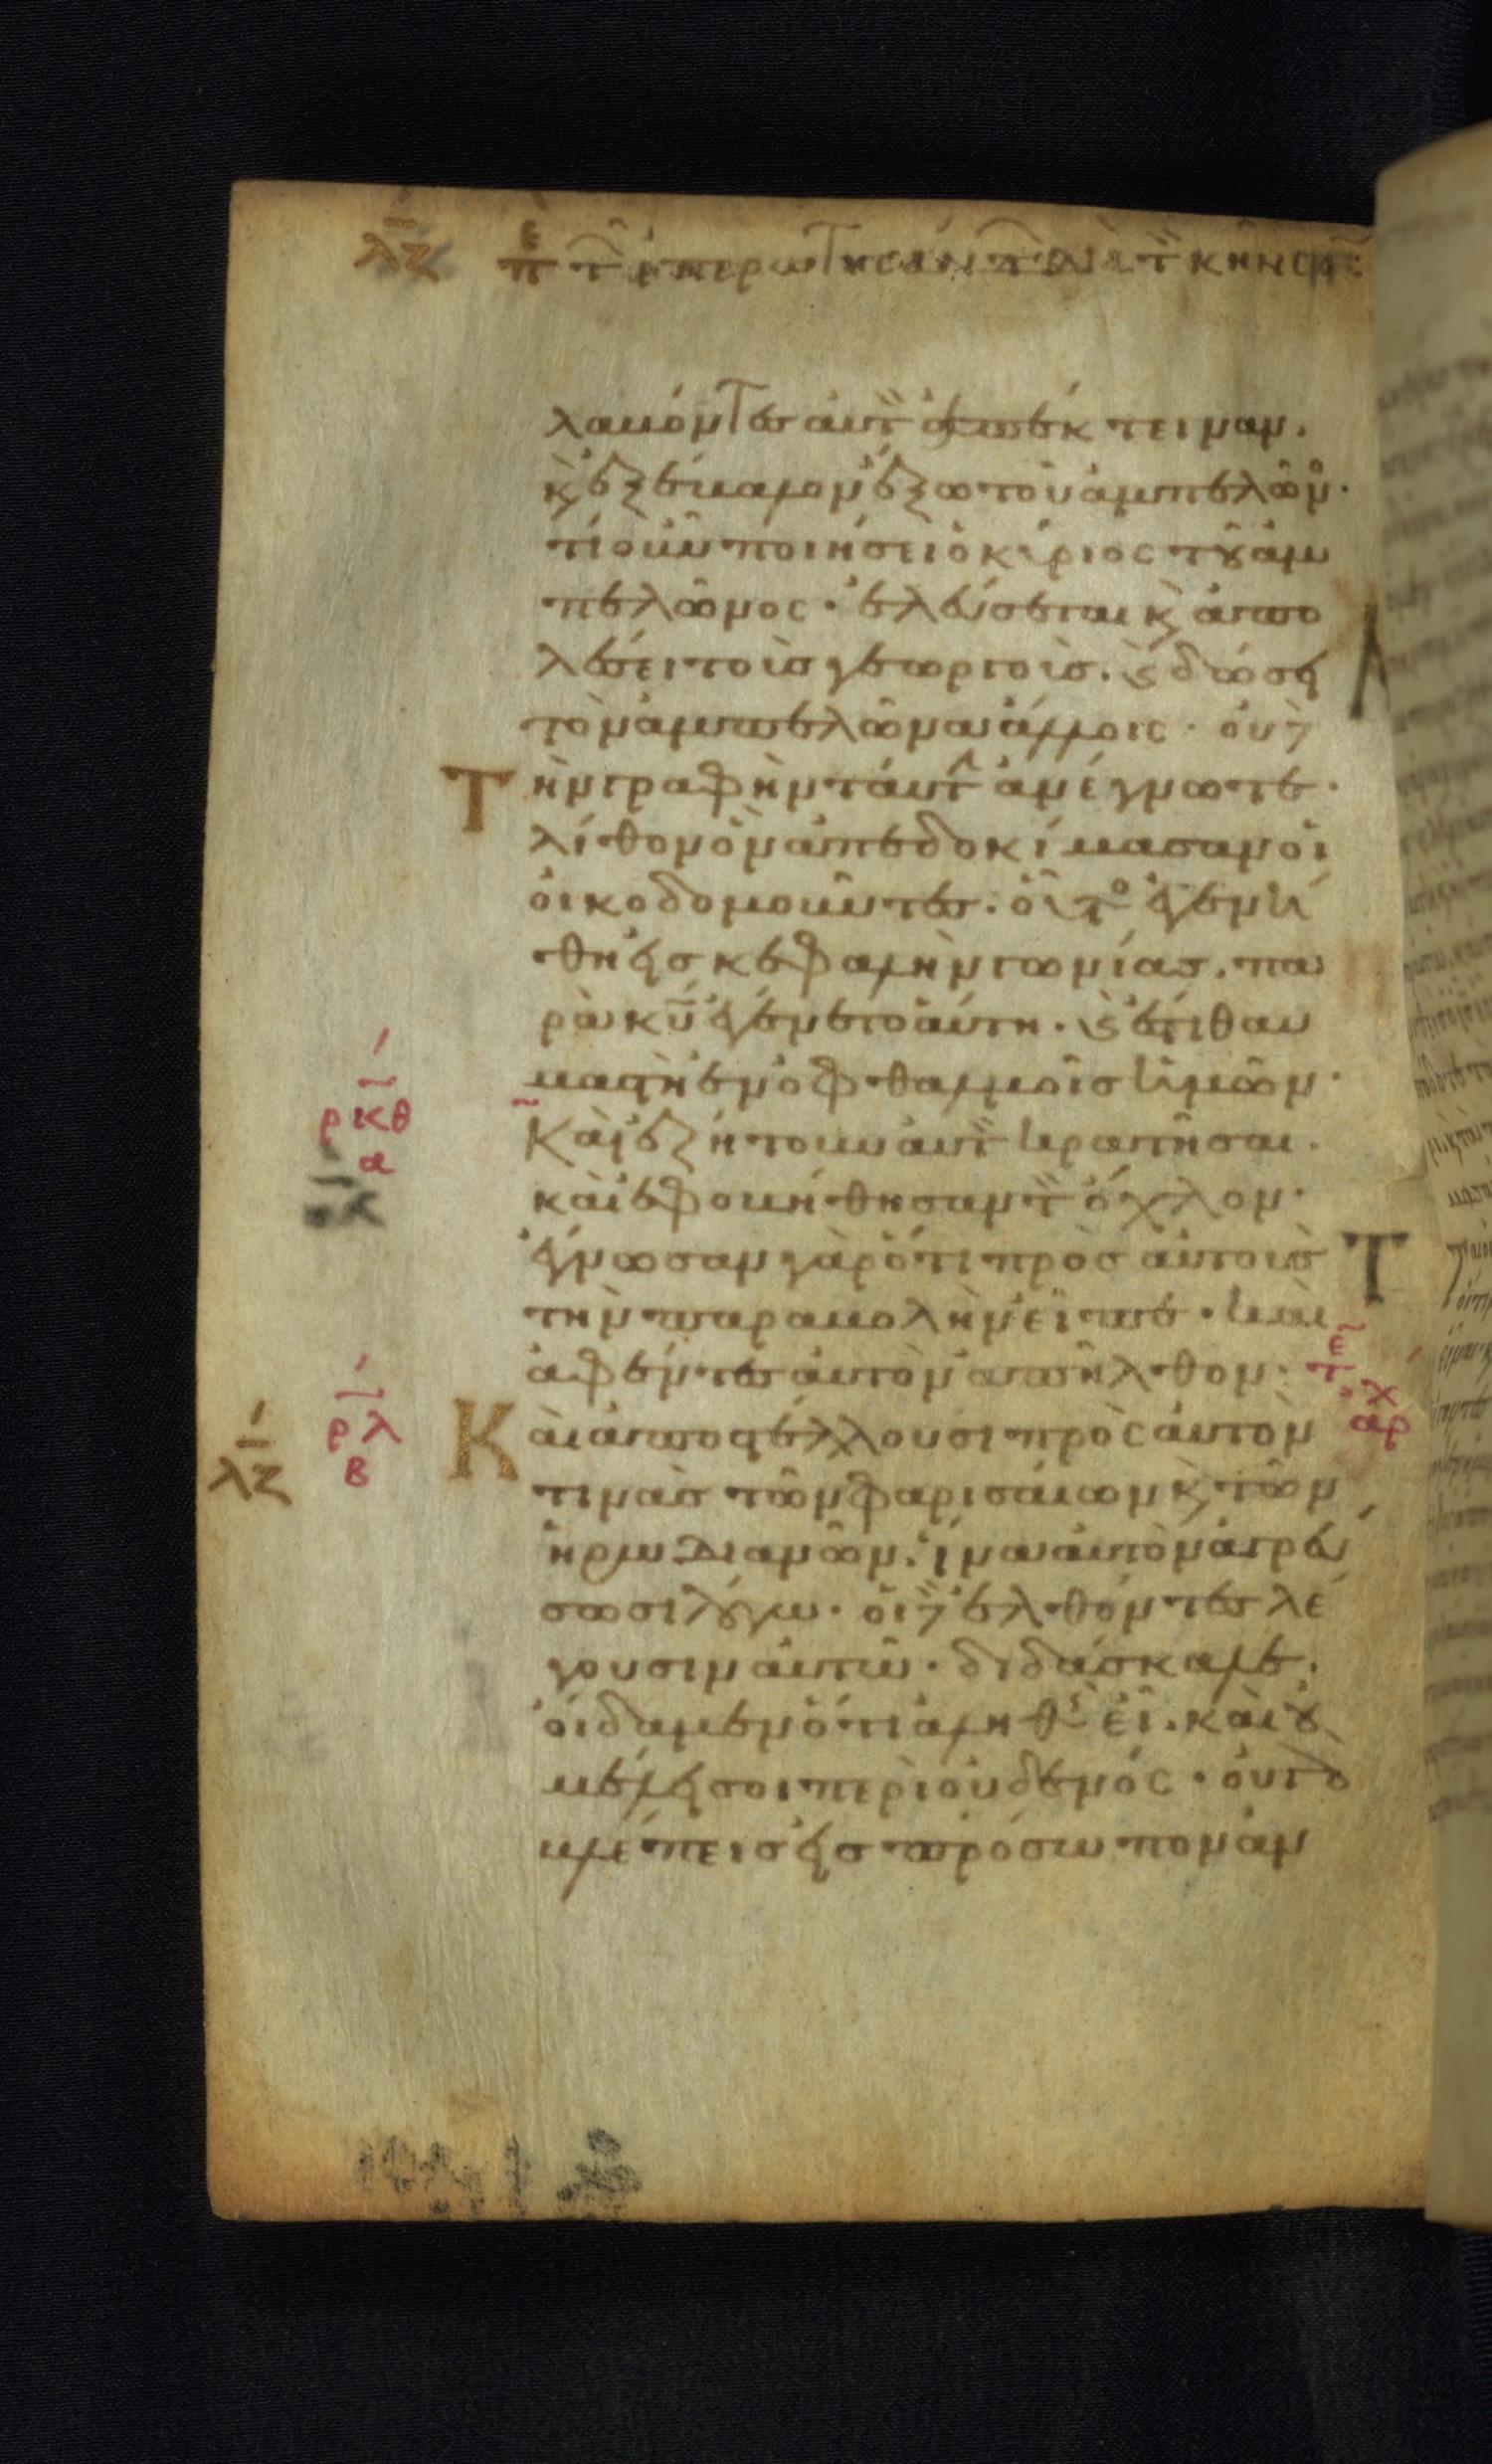 λζ πε τ ἐπερωτησάντ διὰ τ κῆνσον
λαβόντες αὐτ ἀπέκτειναν.
κ ἐξέβαλον ἔξω τοῦ ἀμπελῶν·
τί οὖν ποιήσει ὁ κύριος τοῦ ἀμ
πελῶνος· ἐλεύσεται κ ἀπο
λέσει τοὺς γεωργούς. κ δώσει
τὸν ἀμπελῶνα ἄλλοις· οὐδ
Τ ὴν γραφὴν ταύτ ἀνέγνωτε·
λίθον ὃν ἀπεδοκίμασαν οἱ
οἰκοδομοῦντες. οὗτο ἐγενή
θη εἰς κεφαλὴν γωνίας. πα
ρὰ κυ ἐγένετο αὕτη. κ ἔστι θαυ
μαστὴ ἐν ὀφθαλμοῖς ὑμῶν·
ρκθ α
Καὶ ἐζήτουν αὐτ κρατῆσαι.
καὶ ἐφοβήθησαν τ ὄχλον·
ἔγνωσαν γὰρ ὅτι πρὸς αὐτοὺς
τὴν παραβολὴν εἶπε· καὶ
ἀφέντες αὐτὸν ἀπῆλθον·
λζ ρλ β
Κ αὶ ἀποστέλλουσι πρὸς αὐτὸν
τινὰς τῶν φαρισαίων κ τῶν
ἡρωδιανῶν. ἵνα αὐτὸν ἀγρεύ
σωσι λόγω· οἱ δ ἐλθόντες λέ
γουσιν αὐτῶ· διδάσκαλε.
οἴδαμεν ὅτι ἀληθὴς εἶ. καὶ οὐ
μέλει σοι περὶ οὐδενός· οὐ γὰ
βλέπεις εἰς πρόσωπον ἀν